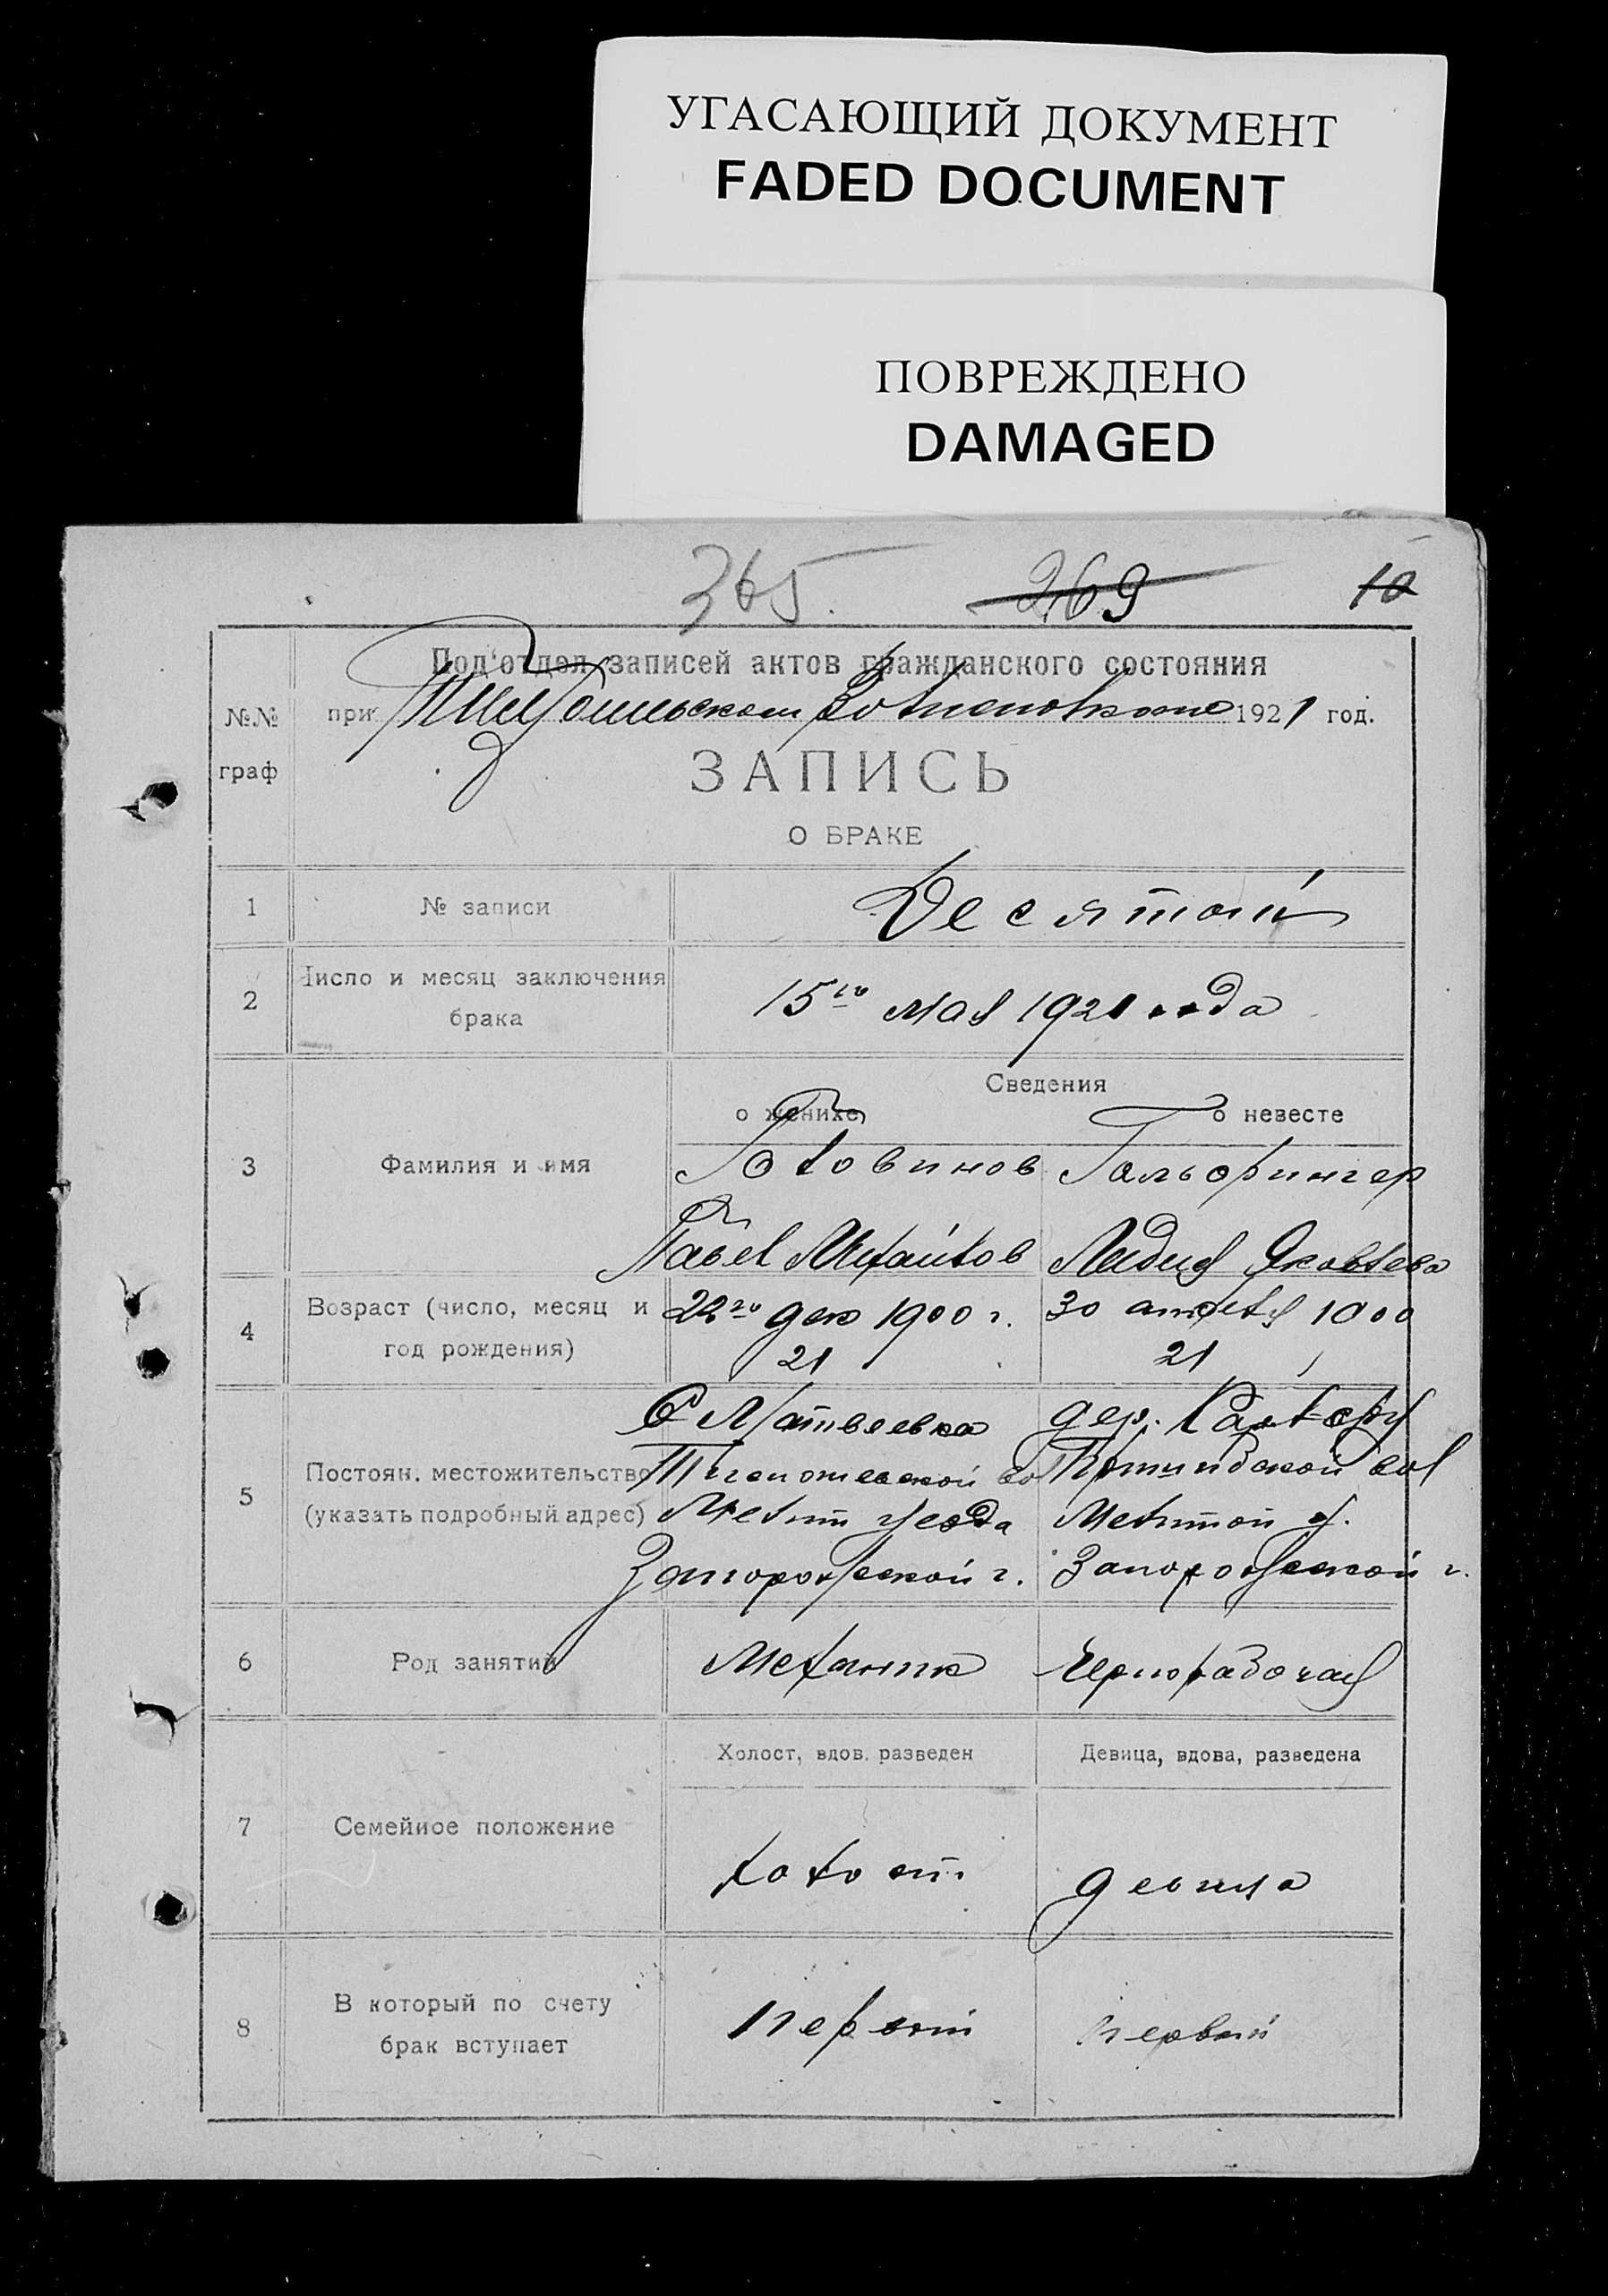 УГАСАЮЩИЙ ДОКУМЕНТ
FADED DOCUMENT
ПОВРЕЖДЕНО
DAMAGED
365. 269 10
Под'отдел записей актов гражданского состояния
№№ граф
при 1921 год.
ЗАПИСЬ
О БРАКЕ
1 № записи Десятый
2 Число и месяц заключения брака 15го мая 1921 года
Сведения
о женихе о невесте
3 Фамилия и имя Головинов Гальфингер
Павел Михайлов Лидия Яковлева
4 Возраст (число, месяц и год рождения) дек 1900 г. 30 1900
21 21
5 Постоян. местожительство (указать подробный адрес) С Матвеевка дер.
Мелит уезда Мелитоп у.
Запорожской г. Запорожской г.
6 Род занятий Механик Чернорабочая
Холост, вдов. разведен Девица, вдова, разведена
7 Семейное положение холост девица
8 В который по счету брак вступает первый первый